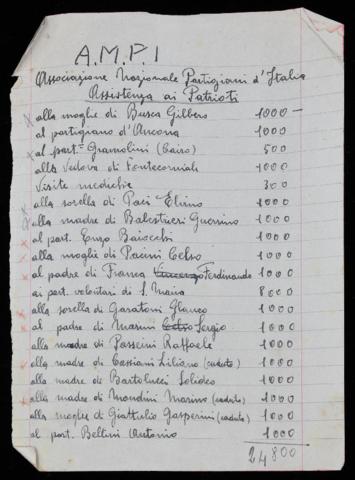 A.M.P.I
Associazione Nazionale Partigiani d'Italia
Assistenza ai Patrioti
alla moglie di Busca Gilbero 1000
al partigiano d'Ancona 1000
al part. Gramolini (Cairo) 500
alla Vedova di Fontecorniale 1000
Visite mediche 300
alla sorella di Paci Elvino 1000
alla madre di Balestrieri Guerrino 1000
al part. Enzo Baiocchi 1000
alla moglie di Pacini Celso 1000
al padre di Franca Vincenzo Ferdinando 1000
ai part. volontari di S. Maria 8000
alla sorella di Garatoni Glauco 1000
al padre di Marini Celso Sergio 1000
alla madre di Passeini Raffaele 1000
alla madre di Cassiani Liliano (caduto) 1000
alla madre di Bartolucci Solideo 1000
alla madre di Mondini Marino (caduto) 1000
alla moglie di Giattulio Gasperini (caduto) 1000
al part. Beltini Antonio 1000
24800